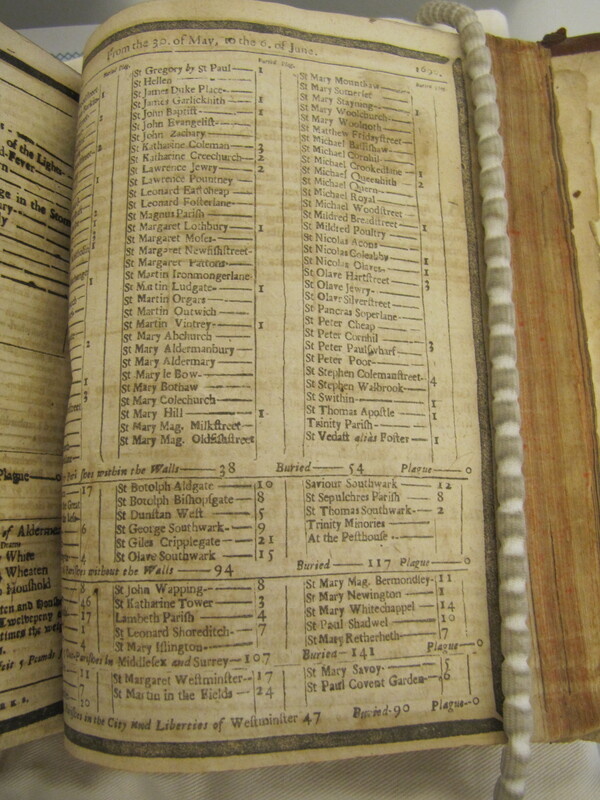 From the 30. of May, to the 6. of June.
Buried Plag.
Buried Plag.
St Gregory by St Paul 1
St Hellen
St James Duke Place
St James Garlickhith 1
St John Baptist 1
St John Evangelist
St John Zachary
St Katharine Coleman 3
St Katharine Creechurch 2
St Lawrence Jewry 2
St Lawrence Pountney
St Leonard Eastcheap
St Leonard Fosterlane
St Magnus Parish
St Margaret Lothbury 1
St Margaret Moses
St Margaret Newfishstreet
St Margaret Pattons
St Martin Ironmongerlane
St Martin Ludgate 1
St Martin Orgars
St Martin Outwich
St Martin Vintrey 1
St Mary Abchurch
St Mary Aldermanbury
St Mary Aldermary
St Mary le Bow
St Mary Bothaw
St Mary Colechurch
St Mary Hill 1
St Mary Mag. Milkstreet
St Mary Mag. Oldfishstreet
St Mary Mounthaw
St Mary Somerset
St Mary Stayning
St Mary Woolchurch 1
St Mary Woolnoth
St Matthew Fridaystreet
St Michael Bassishaw
St Michael Cornhil
St Michael Crookedlane 1
St Michael Queenhith 2
St Michael Quern
St Michael Royal
St Michael Woodstreet
St Mildred Breadstreet
St Mildred Poultry 1
St Nicolas Acons
St Nicolas Coleabby
St Nicolas Olaves 1
St Olave Hartstreet 1
St Olave Jewry 3
St Olave Silverstreet
St Pancras Soperlane
St Peter Cheap
St Peter Cornhil
St Peter Paulswharf 3
St Peter Poor
St Stephen Colemanstreet 4
St Stephen Walbrook
St Swithin 1
St Thomas Apostle 1
Trinity Parish
St Vedast alias Foster 1
within the Walls 38 Buried 54 Plague 0
17 St Botolph Aldgate 10
St Botolph Bishopsgate 8
St Dunstan West 5
6 St George Southwark 9
St Giles Cripplegate 21
4 St Olave Southwark 15
Saviour Southwark 12
St Sepulchres Parish 8
St Thomas Southwark 2
Trinity Minories
At the Pesthouse
without the Walls 94 Buried 117 Plague 0
8 St John Wapping 8
46 St Katharine Tower 3
17 Lambeth Parish 4
1 St Leonard Shoreditch 7
St Mary Islington
St Mary Mag. Bermondsey 11
St Mary Newington 1
St Mary Whitechappel 14
St Paul Shadwel 10
St Mary Retherheth 7
in Middlesex and Surrey 107 Buried 141 Plague 0
11 St Margaret Westminster 17
7 St Martin in the Fields 24
20
St Mary Savoy 5
St Paul Covent Garden 6
in the City and Liberties of Westminster 47 Buried 90 Plague 0